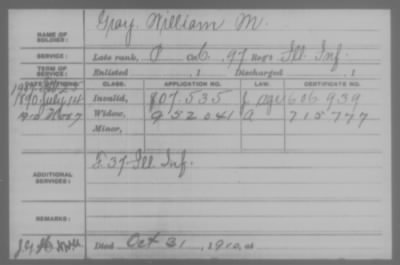 Gray, William M.
NAME OF SOLDIER:
SERVICE: Late rank, P Co. 6, 97 Reg't Ill. Inf.
TERM OF SERVICE: Enlisted , 1 Discharged , 1
DATE OF FILING. CLASS. APPLICATION NO. LAW. CERTIFICATE NO.
1890 July 14 Invalid, 807.535 606.939
1910 Nov 7 Widow, 952041 a 715777
Minor,
ADDITIONAL SERVICES: E 37 Ill. Inf.
REMARKS:
Died Oct 31, 1910, at